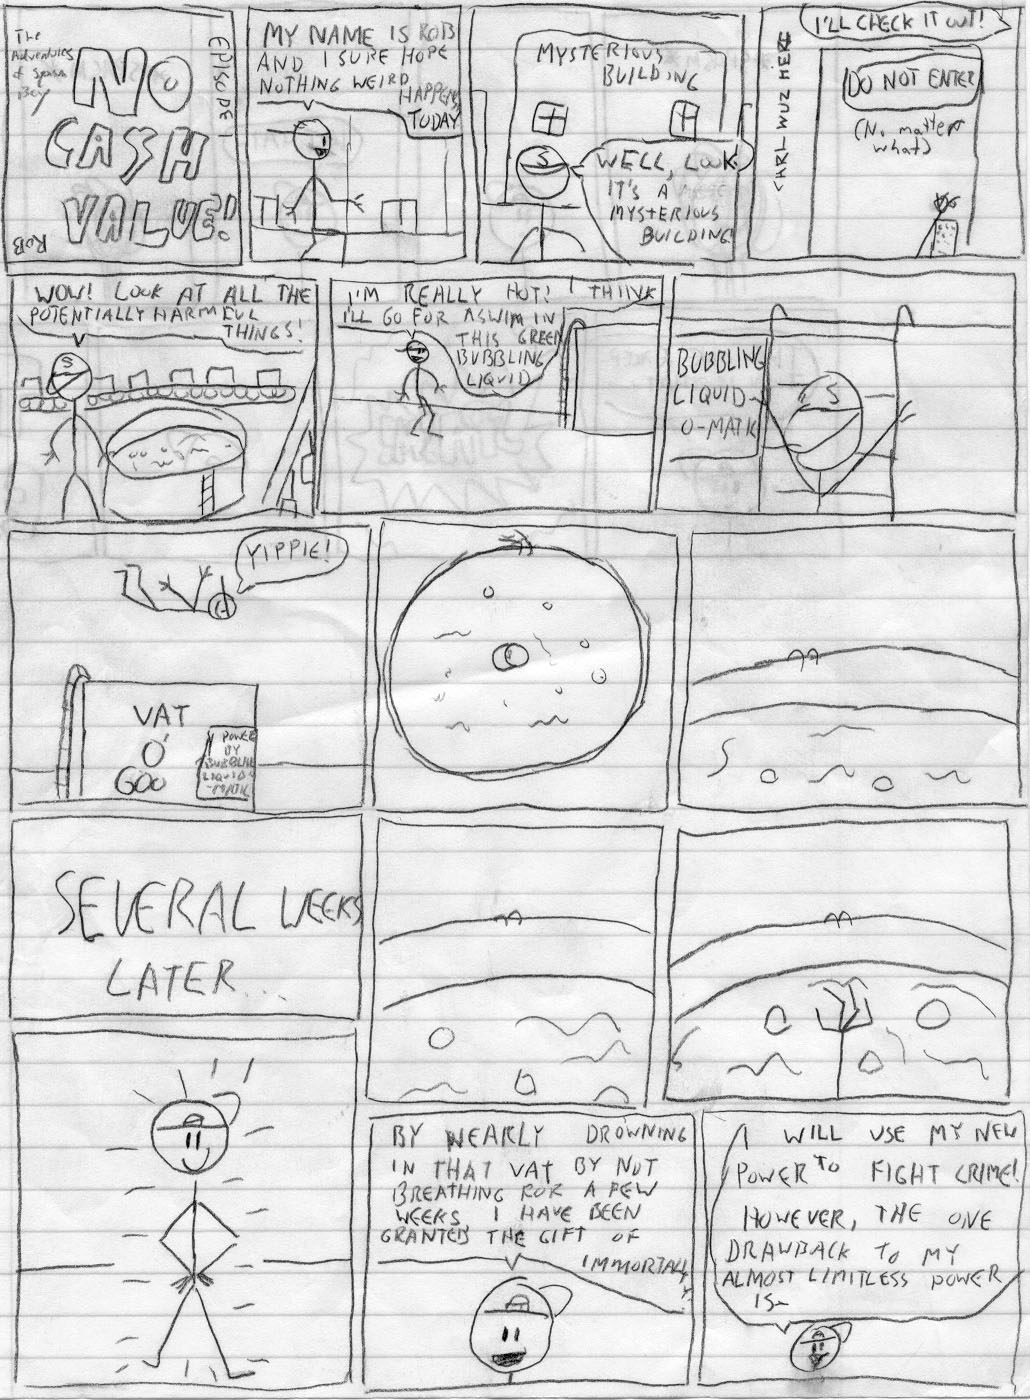 The
Adventures
of Spasm
Boy
NO
CASH
VALUE!
EPISODE 1
ROB
MY NAME IS ROB
AND I SURE HOPE
NOTHING WEIRD
HAPPENS
TODAY
MYSTERIOUS
BUILDING
S
WELL, LOOK.
IT'S A
MYSTERIOUS
BUILDING
I'LL CHECK IT OUT!
DO NOT ENTER
(No matter
what)
WUZ HERE
WOW! LOOK AT ALL THE
POTENTIALLY HARMFUL
THINGS!
S
I'M REALLY HOT! I THIINK
I'LL GO FOR A SWIM IN
THIS GREEN
BUBBLING
LIQUID
BUBBLING
LIQUID-
O-MATIK
S
YIPPIE!
VAT
O'
GOO
POWER
BY
BUBBLING
LIQUID-O
-MATIK
SEVERAL WEEKS
LATER...
BY NEARLY DROWNING
IN THAT VAT BY NOT
BREATHING FOR A FEW
WEEKS I HAVE BEEN
GRANTED THE GIFT OF
IMMORTALITY.
I WILL USE MY NEW
POWER TO FIGHT CRIME!
HOWEVER, THE ONE
DRAWBACK TO MY
ALMOST LIMITLESS POWER
IS-